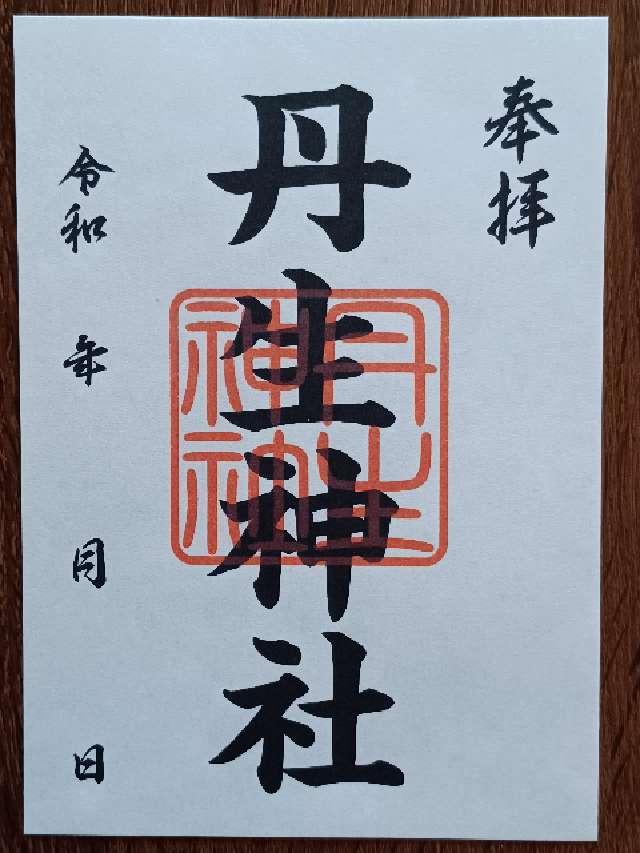 奉拝
丹生神社
丹生
神社
令和 年 月 日